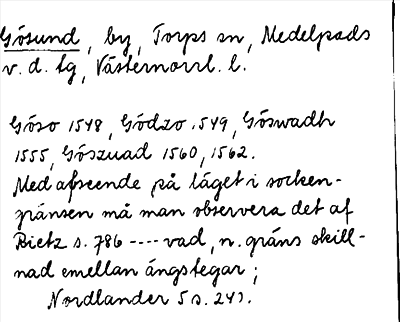 Gösund, by, Torps sn, Medelpads
v. d. tg, Västernorrl. l.
Göso 1548, Gödzo 1549, Göswadh
1555, Göszuad 1560, 1562.
Med afseende på läget i socken-
gränsen må man observera det af
Rietz s. 786 ---- vad, n. gräns skill-
nad emellan ängstegar;
Nordlander 5 s. 243.